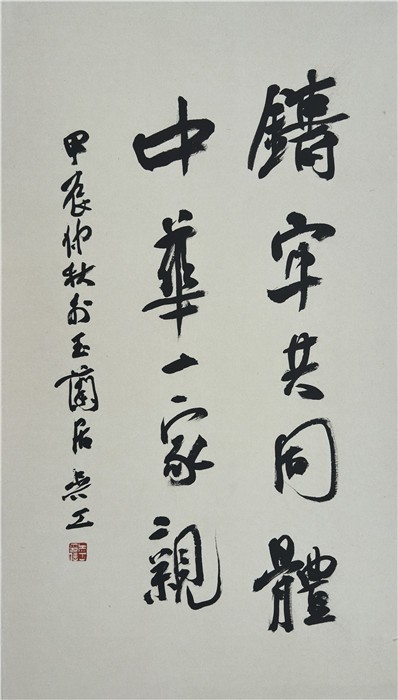 鑄牢共同體
中華一家親
甲辰仲秋於玉蘭居 吳工